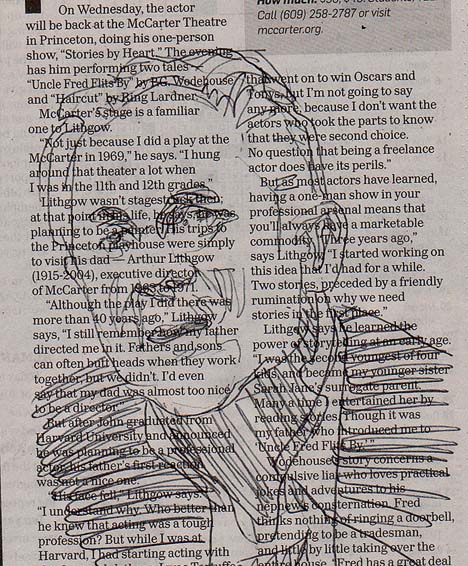 On Wednesday, the actor
will be back at the McCarter Theatre
in Princeton, doing his one-person
show, "Stories by Heart." The evening
has him performing two tales —
"Uncle Fred Flits By" by P.G. Wodehouse
and "Haircut" by Ring Lardner.
McCarter's stage is a familiar
one to Lithgow.
"Not just because I did a play at the
McCarter in 1969," he says. "I hung
around that theater a lot when
I was in the 11th and 12th grades."
Lithgow wasn't stagestruck then;
at that point in his life, he says, he was
planning to be a painter. His trips to
the Princeton playhouse were simply
to visit his dad — Arthur Lithgow
(1915-2004), executive director
of McCarter from 1963 to 1971.
"Although the play I did there was
more than 40 years ago," Lithgow
says, "I still remember how my father
directed me in it. Fathers and sons
can often butt heads when they work
together, but we didn't. I'd even
say that my dad was almost too nice
to be a director."
But after John graduated from
Harvard University and announced
he was planning to be a professional
actor, his father's first reaction
was not a nice one.
"His face fell," Lithgow says.
"I understand why. Who better than
he knew that acting was a tough
profession? But while I was at
Harvard, I had starting acting with
Call (609) 258-2787 or visit
mccarter.org.
that went on to win Oscars and
Tonys, but I'm not going to say
any more, because I don't want the
actors who took the parts to know
that they were second choice.
No question that being a freelance
actor does have its perils."
But as most actors have learned,
having a one-man show in your
professional arsenal means that
you'll always have a marketable
commodity. "Three years ago,"
says Lithgow, "I started working on
this idea that I'd had for a while.
Two stories, preceded by a friendly
rumination on why we need
stories in the first place."
Lithgow says he learned the
power of storytelling at an early age.
"I was the second youngest of four
kids, and became my younger sister
Sarah Jane's surrogate parent.
Many a time I entertained her by
reading stories. Though it was
my father who introduced me to
'Uncle Fred Flits By.'"
Wodehouse's story concerns a
compulsive liar who loves practical
jokes and adventures to his
nephew's consternation. Fred
thinks nothing of ringing a doorbell,
pretending to be a tradesman,
and little by little taking over the
entire house. "Fred has a great deal